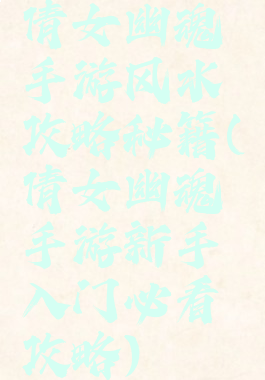 倩女幽魂
手游风水
攻略秘籍(
倩女幽魂
手游新手
入门必看
攻略)